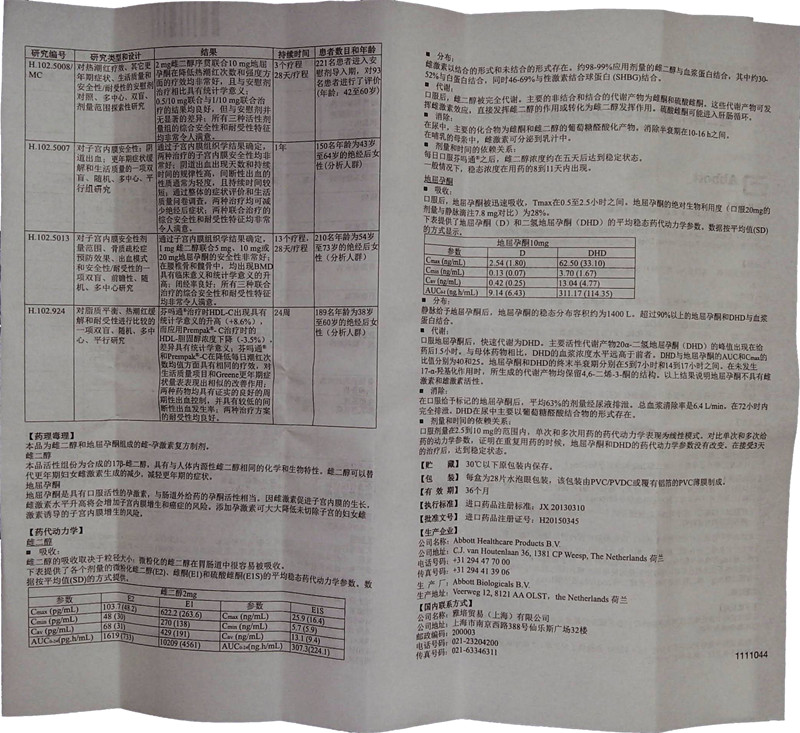 研究编号 研究类型和设计 结果 持续时间 患者数目和年龄
H.102.5008/MC
对热潮红疗效、其它更年期症状、生活质量和安全性/耐受性的安慰剂对照、多中心、双盲、剂量范围探索性研究
2 mg雌二醇序贯联合10 mg地屈
孕酮在降低热潮红次数和强度方
面的疗效均非常好，且与安慰剂
治疗相比具有统计学意义;
0.5/10 mg联合与1/10 mg联合治
疗的结果均良好，但与安慰剂并
无显著的差异; 所有三种活性剂
量组的综合安全性和耐受性特征
均非常令人满意。
3个疗程
28天/疗程
221名患者进入安
慰剂导入期，对93
名患者进行了评价
(年龄：42至60岁)
H.102.5007
对子宫内膜安全性; 阴
道出血；更年期症状缓
解和生活质量的一项双
盲、随机、多中心、平
行组研究
通过子宫内膜组织学结果确定，
两种治疗的子宫内膜安全性均非
常好；阴道出血出现天数和持续
时间的规律性高，间断性出血的
性质通常为轻度，且持续时间较
短；通过整体的症状评价和生活
质量问卷调查，两种治疗均可减
少绝经后症状；两种联合治疗的
综合安全性和耐受性特征均非常
令人满意。
1年
150名年龄为43岁
至64岁的绝经后女
性(分析人群)
H.102.5013
对子宫内膜安全性剂
量范围、骨质疏松症
预防效果、出血模式
和安全性/耐受性的一
项双盲、前瞻性、随
机、多中心研究
通过子宫内膜组织学结果确定，
1 mg 雌二醇联合5 mg、10 mg或
20 mg地屈孕酮的安全性非常好；
在腰椎骨和髋骨中，均出现BMD
具有临床意义和统计学意义的升
高；闭经率良好；所有三种联合
治疗的综合安全性和耐受性特征
均非常令人满意。
13个疗程，
28天/疗程
210名年龄为54岁
至73岁的绝经后女
性(分析人群)
H.102.924
对脂质平衡、热潮红缓
解和耐受性进行比较的
一项双盲、随机、多中
心、平行研究
芬吗通®治疗时HDL-C出现具有
统计学意义的升高（+8.6%），
而应用Prempak®- C治疗时的
HDL-胆固醇浓度下降（-3.5%），
差异具有统计学意义；芬吗通®
和Prempak®-C在降低每日潮红次
数均值方面具有相同的疗效，对
生活质量项目和Greene更年期症
状量表表现出相似的改善作用；
两种药物均具有证实的良好的周
期性出血控制，并具有较低的间
断性出血发生率；两种治疗方案
的耐受性均良好。
24周
189名年龄为38岁
至60岁的绝经后女
性(分析人群)
【药理毒理】
本品为雌二醇和地屈孕酮组成的雌-孕激素复方制剂。
雌二醇
本品活性组份为合成的17β-雌二醇，具有与人体内源性雌二醇相同的化学和生物特性。雌二醇可以替
代更年期妇女雌激素生成的减少，减轻更年期的症状。
地屈孕酮
地屈孕酮是具有口服活性的孕激素，与肠道外给药的孕酮活性相当。因雌激素促进子宫内膜的生长，
雌激素水平升高将会增加子宫内膜增生和癌症的风险。添加孕激素可大大降低未切除子宫的妇女雌
激素诱导的子宫内膜增生的风险。
【药代动力学】
雌二醇
■ 吸收：
雌二醇的吸收取决于粒径大小：微粉化的雌二醇在胃肠道中很容易被吸收。
下表提供了各个剂量的微粉化雌二醇(E2)、雌酮(E1)和硫酸雌酮(E1S)的平均稳态药代动力学参数。数
据按平均值(SD)的方式提供。
雌二醇2mg
参数 E2 E1 参数 E1S
Cmax (pg/mL) 103.7(48.2) 622.2 (263.6) Cmax (ng/mL) 25.9 (16.4)
Cmin (pg/mL) 48 (30) 270 (138) Cmin (ng/mL) 5.7 (5.9)
Cav (pg/mL) 68 (31) 429 (191) Cav (ng/mL) 13.1 (9.4)
AUC0-24(pg.h/mL) 1619 (733) 10209 (4561) AUC0-24(ng.h/mL) 307.3(224.1)
■ 分布：
雌激素以结合的形式和未结合的形式存在。约98-99%应用剂量的雌二醇与血浆蛋白结合，其中约30-
52%与白蛋白结合，同时46-69%与性激素结合球蛋白 (SHBG)结合。
■ 代谢：
口服后，雌二醇被完全代谢。主要的非结合和结合的代谢产物为雌酮和硫酸雌酮。这些代谢产物可发
挥雌激素效应，直接发挥雌二醇的作用或转化为雌二醇发挥作用。硫酸雌酮可能进入肝肠循环。
■ 消除：
在尿中，主要的化合物为雌酮和雌二醇的葡萄糖醛酸化产物，消除半衰期在10-16 h之间。
在哺乳的母亲中，雌激素可分泌到乳汁中。
■ 剂量和时间的依赖关系：
每日口服芬吗通®之后，雌二醇浓度约在五天后达到稳定状态。
一般情况下，稳态浓度在用药的8到11天内出现。
地屈孕酮
■ 吸收：
口服后，地屈孕酮被迅速吸收，Tmax在0.5至2.5小时之间。地屈孕酮的绝对生物利用度（口服20mg的
剂量与静脉滴注7.8 mg对比）为28%。
下表提供了地屈孕酮（D）和二氢地屈孕酮（DHD）的平均稳态药代动力学参数。数据按平均值(SD)
的方式显示。
地屈孕酮10mg
参数 D DHD
Cmax (ng/mL) 2.54 (1.80) 62.50 (33.10)
Cmin (ng/mL) 0.13 (0.07) 3.70 (1.67)
Cav (ng/mL) 0.42 (0.25) 13.04 (4.77)
AUC0-t (ng.h/mL) 9.14 (6.43) 311.17 (114.35)
■ 分布：
静脉给予地屈孕酮后，地屈孕酮的稳态分布容积约为1400 L。超过90%以上的地屈孕酮和DHD与血浆
蛋白结合。
■ 代谢：
口服地屈孕酮后，快速代谢为DHD。主要活性代谢产物20α-二氢地屈孕酮（DHD）的峰值出现在给
药后1.5小时。与母体药物相比，DHD的血浆浓度水平远高于前者，DHD与地屈孕酮的AUC和Cmax的
比值分别为40和25。地屈孕酮和DHD的终末半衰期分别在5到7小时和14到17小时之间。在未发生
17-α-羟基化作用时，所生成的代谢产物均保留4,6-二烯-3-酮的结构。以上结果说明地屈孕酮不具有雌
激素和雄激素活性。
■ 消除：
在口服给予标记的地屈孕酮后，平均63%的剂量经尿液排泄。总血浆清除率是6.4 L/min。在72小时内
完全排泄。DHD在尿中主要以葡萄糖醛酸结合物的形式存在。
■ 剂量和时间的依赖关系：
口服剂量在2.5到10 mg的范围内，单次和多次用药的药代动力学表现为线性模式。对比单次和多次给
药的动力学参数，证明在重复用药的时候，地屈孕酮和DHD的药代动力学参数没有改变。在接受3天
的治疗后，达到稳定状态。
【贮 藏】 30℃以下原包装内保存。
【包 装】 每盒为28片水泡眼包装，该包装由PVC/PVDC或覆有铝箔的PVC薄膜制成。
【有 效 期】 36个月
【执行标准】 进口药品注册标准：JX 20130310
【批准文号】 进口药品注册证号：H20150345
【生产企业】
公司名称：Abbott Healthcare Products B.V.
公司地址：C.J. van Houtenlaan 36, 1381 CP Weesp, The Netherlands 荷兰
电话号码：+31 294 47 70 00
传真号码：+31 294 41 39 06
生 产 厂：Abbott Biologicals B.V.
生产地址：Veerweg 12, 8121 AA OLST，the Netherlands 荷兰
【国内联系方式】
公司名称：雅培贸易（上海）有限公司
公司地址：上海市南京西路388号仙乐斯广场32楼
邮政编码：200003
电话号码：021-23204200
传真号码：021-63346311
1111044